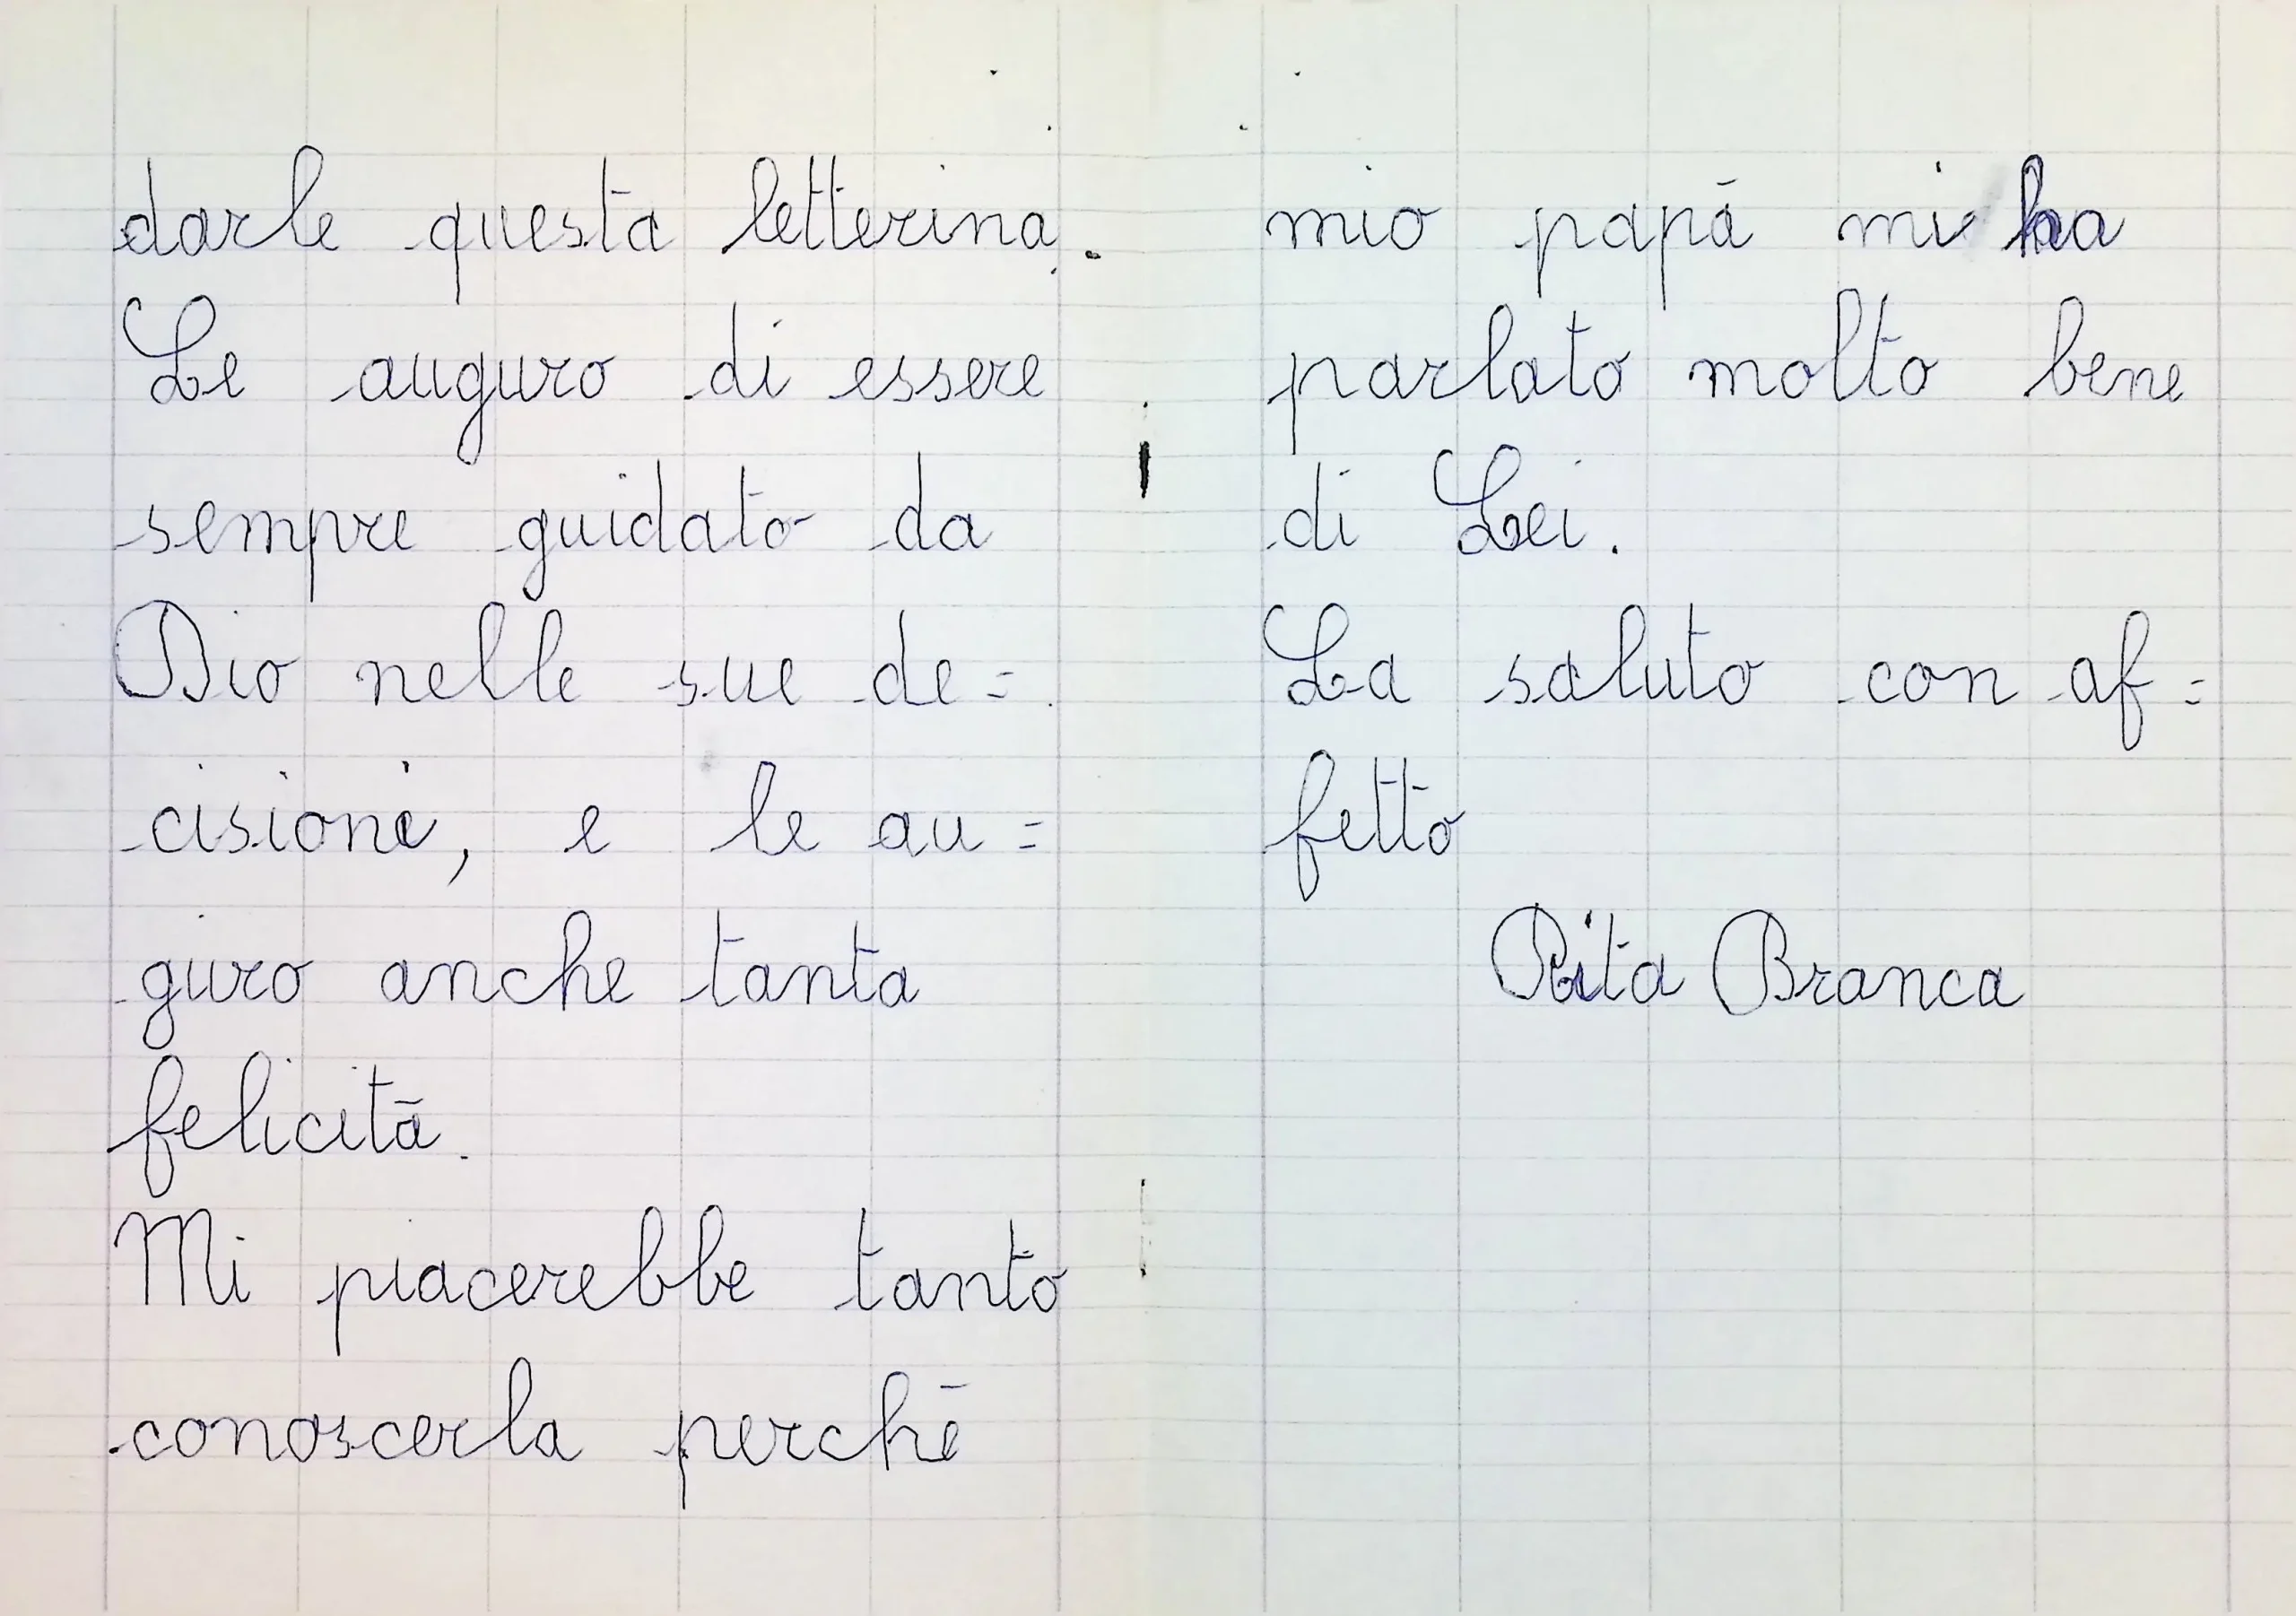 darle questa letterina.
Le auguro di essere
sempre guidato da
Dio nelle sue de=
cisioni, e le au=
guro anche tanta
felicità.
Mi piacerebbe tanto
conoscerla perchē
mio papā mi ha
parlato molto bene
di Lei.
La saluto con af=
fetto
Rita Branca